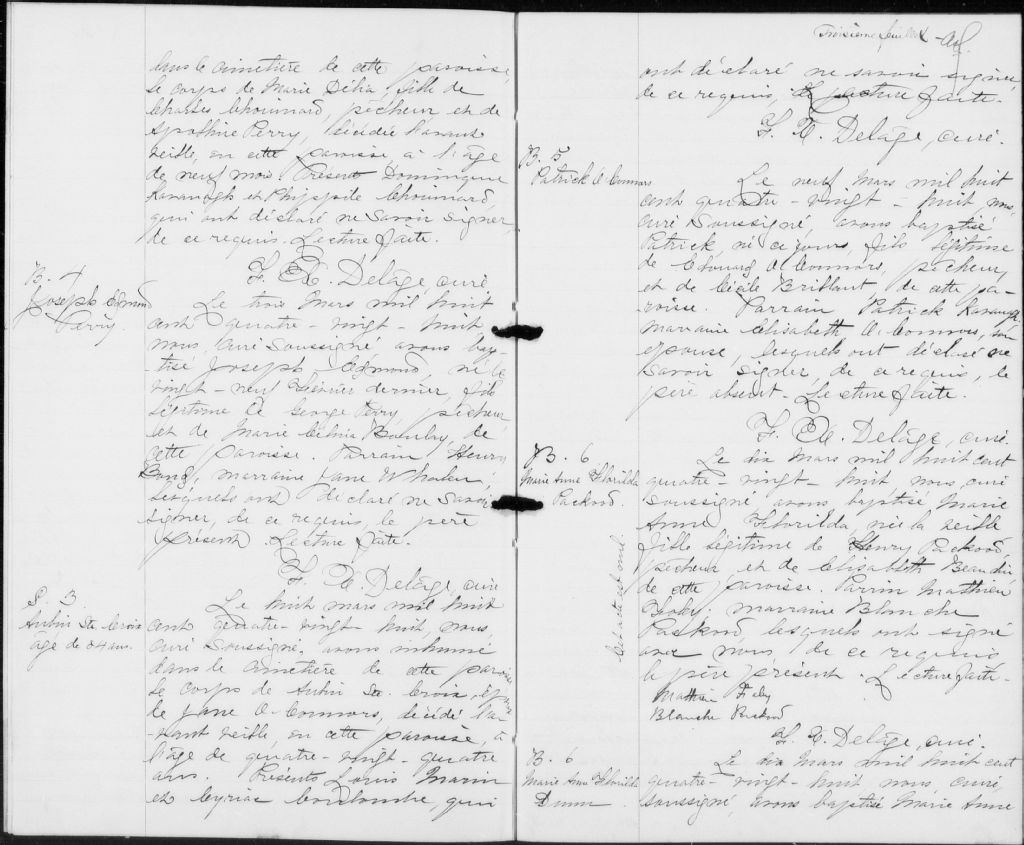 dans le cimetière de cette paroisse
le corps de Marie Délia, fille de
Charles Chouinard, pêcheur et de
Perry, décédée l'avant
veille, en cette paroisse, à l'âge
de neuf mois. Présents Dominique
Kavanagh et Philippe Chouinard,
qui ont déclaré ne savoir signer,
de ce requis. Lecture faite.
F. X. Delâge, curé.
B. 4
Joseph Edmond
Perry.
Le trois Mars mil huit
cent quatre-vingt-huit
nous, curé soussigné avons bap-
tisé Joseph Edmond, né le
vingt-neuf Février dernier, fils
légitime de George Perry, pêcheur,
et de Marie de
cette paroisse. Parrain Henry
Bond, marraine Jane Whalen,
lesquels ont déclaré ne savoir
signer, de ce requis, le père
présent. Lecture faite.
F. X. Delâge, curé
S. 3.
Aubin Ste Croix
âgé de 84 ans.
Le huit mars mil huit
cent quatre-vingt-huit, nous,
curé soussigné, avons inhumé
dans le cimetière de cette paroisse
le corps de Aubin Ste. Croix, époux
de Jane O'Connors, décédé l'a-
vant veille, en cette paroisse, à
l'âge de quatre-vingt-quatre
ans. Présents Louis Marin
et Cyriac qui
Troisième feuillet
ont déclaré ne savoir signer,
de ce requis, lecture faite.
F. X. Delâge, curé.
B. 5
Patrick O'Connors
Le neuf Mars mil huit
cent quatre-vingt-huit, nous,
curé soussigné, avons baptisé
Patrick, né ce jour, fils légitime
de Edouard O'Connors, pêcheur,
et de Cécile Brillant de cette pa-
roisse. Parrain Patrick Kavanagh
marraine Elisabeth O'Connors, son
épouse, lesquels ont déclaré ne
savoir signer, de ce requis, le
père absent. Lecture faite.
F. X. Delâge, curé.
B. 6
Marie Anne Florilda
Packwood.
Le dix Mars mil huit cent
quatre-vingt-huit, nous, curé
soussigné, avons baptisé Marie
Anne Florilda, née la veille
fille légitime de Henry Packwood
pêcheur et de Elisabeth Beaudin
de cette paroisse. Parrin Mathieu
marraine Blanche
Packwood, lesquels ont signé
avec nous, de ce requis
le père présent. Lecture faite.
Cet acte est nul.
Blanche Packwood
F. X. Delâge, curé.
B. 6
Marie Anne Florilda
Dunn
Le dix Mars mil huit cent
quatre-vingt-huit nous, curé
soussigné, avons baptisé Marie Anne